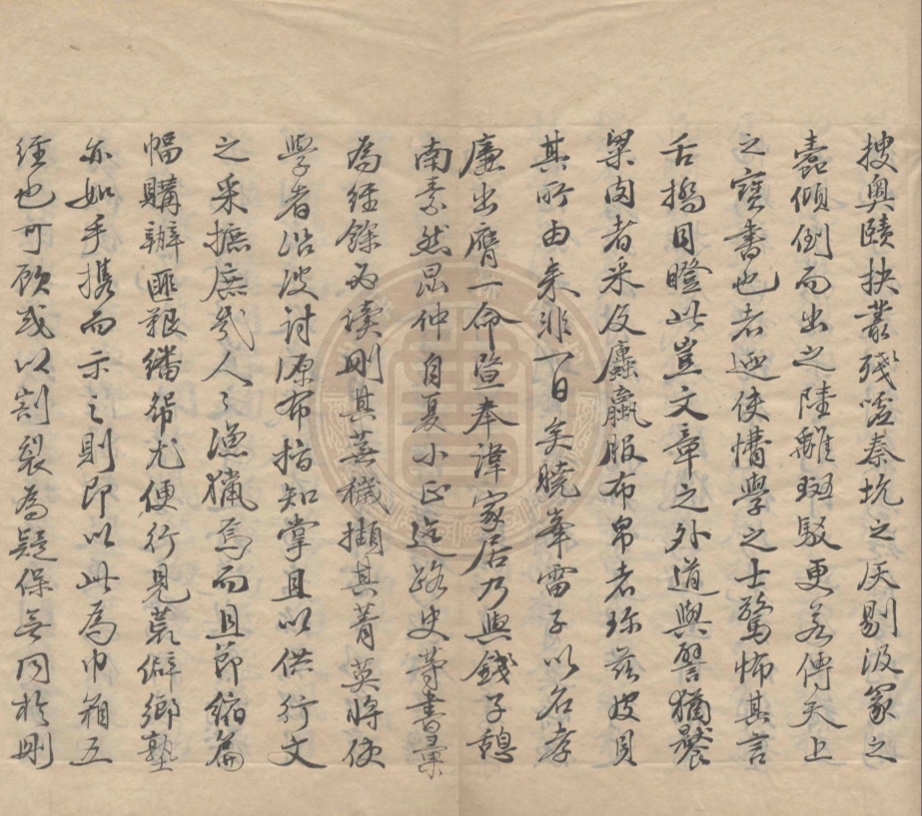 搜奥賾抉叢殘噓秦坑之灰剔汲冢之
蠹傾倒而出之陸離斑駁更若傳天上
之寶書也者遂使懵學之士驚怖其言
舌撟目瞠此豈文章之外道與譬猶饜
粱肉者采及麤羸服布帛者珍茲皮貝
其所由来非一日矣曉峯雷子以名孝
廉出膺一命暨奉諱家居乃與錢子憩
南袁然昆仲自夏小正迄路史等書彙
為經餘而讀刪其蕪穢擷其菁英將使
學者沿波討源布指知掌且以供行文
之采摭庶幾人〻漁獵焉而且節縮篇
幅購辦匪艱繙帋尤便行見荒僻鄉塾
亦如手携而示之則即以此為巾箱五
經也可顧或以割裂為疑保無同於刪